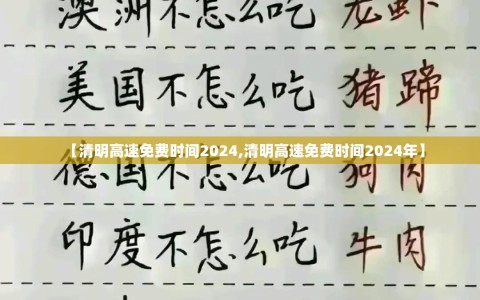 澳洲不怎么吃 龙虾
美国不怎么吃 猪蹄
【清明高速免费时间2024,清明高速免费时间2024年】
德国不怎么吃 狗肉
印度不怎么吃 牛肉